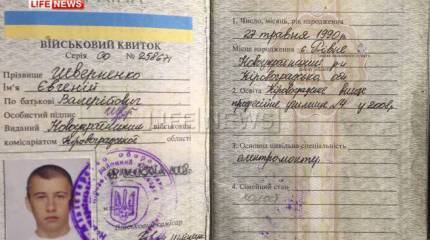 LIFE NEWS
ВІЙСЬКОВИЙ КВИТОК
Серія 00 № 258671
Прізвище Шеверменко
Ім'я Євгеній
По батькові Валерійович
Особистий підпис
Виданий Новоукраїнським військовим
комісаріатом Кіровоградської області
2008
Військовий комісар
1. Число, місяць, рік народження
27 травня 1990 р.
Місце народження с. Рівне
Новоукраїнський р-н
Кіровоградська обл
2. Освіта Кіровоградське вище
професійне училище №4 у 2008р.
LIFE NEWS
3. Основна цивільна спеціальність
електромонт
4. Сімейний стан
холост